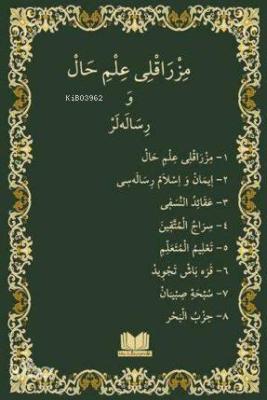 مِزْرَاقْلِى عِلْمِ حَالْ
KiB03962
وَ
رِسَالَه‌لَرْ
١- مِزْرَاقْلِى عِلْمِ حَالْ
٢- اِيمَانْ وَ اِسْلاَمْ رِسَالَه‌سِى
٣- عَقَائِدُ النَّسَفِى
٤- سِرَاجُ الْمُتَّقِينَ
٥- تَعْلِيمُ الْمُتَعَلِّمِ
٦- قَرَه بَاشْ تَجْوِيدْ
٧- سُبْحَةِ صِبْيَانْ
٨- حِزْبُ الْبَحْر